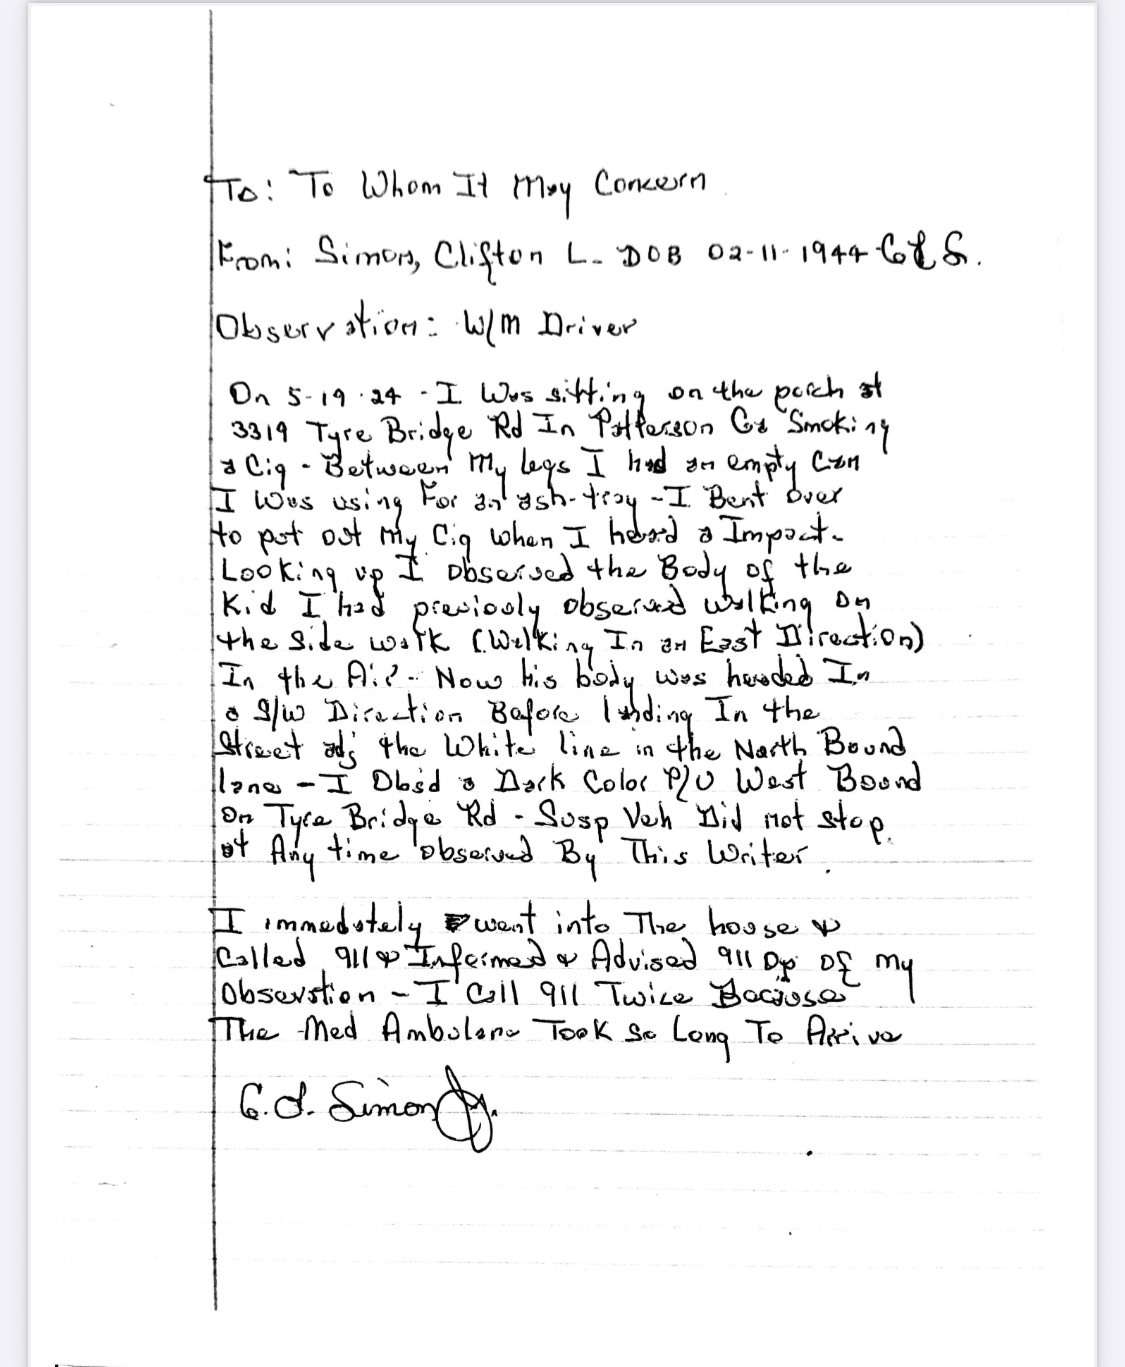 To: To Whom It May Concern
From: Simons, Clifton L. DOB 02-11-1944 C L S.
Observation: W/M Driver
On 5-19-24 - I Was sitting on the porch at
3319 Tyre Bridge Rd In Patterson Ga Smoking
a Cig - Between My legs I had an empty Can
I Was using For an ash-tray - I Bent over
to put out my Cig when I heard a Impact.
Looking up I observed the Body of the
Kid I had previously observed walking on
the side walk (Walking In an East Direction)
In the Air - Now his body was headed In
a S/W Direction Before landing In the
Street adj the White line in the North Bound
lane - I Obs'd a Dark Color P/U West Bound
on Tyre Bridge Rd - Susp Veh Did not stop
at Any time observed By This Writer.
I immedately went into The house &
Called 911 & Informed & Advised 911 Op Of my
Observation - I Call 911 Twice Because
The Med Ambulanc Took so Long To Arrive
C. L. Simons Jr.